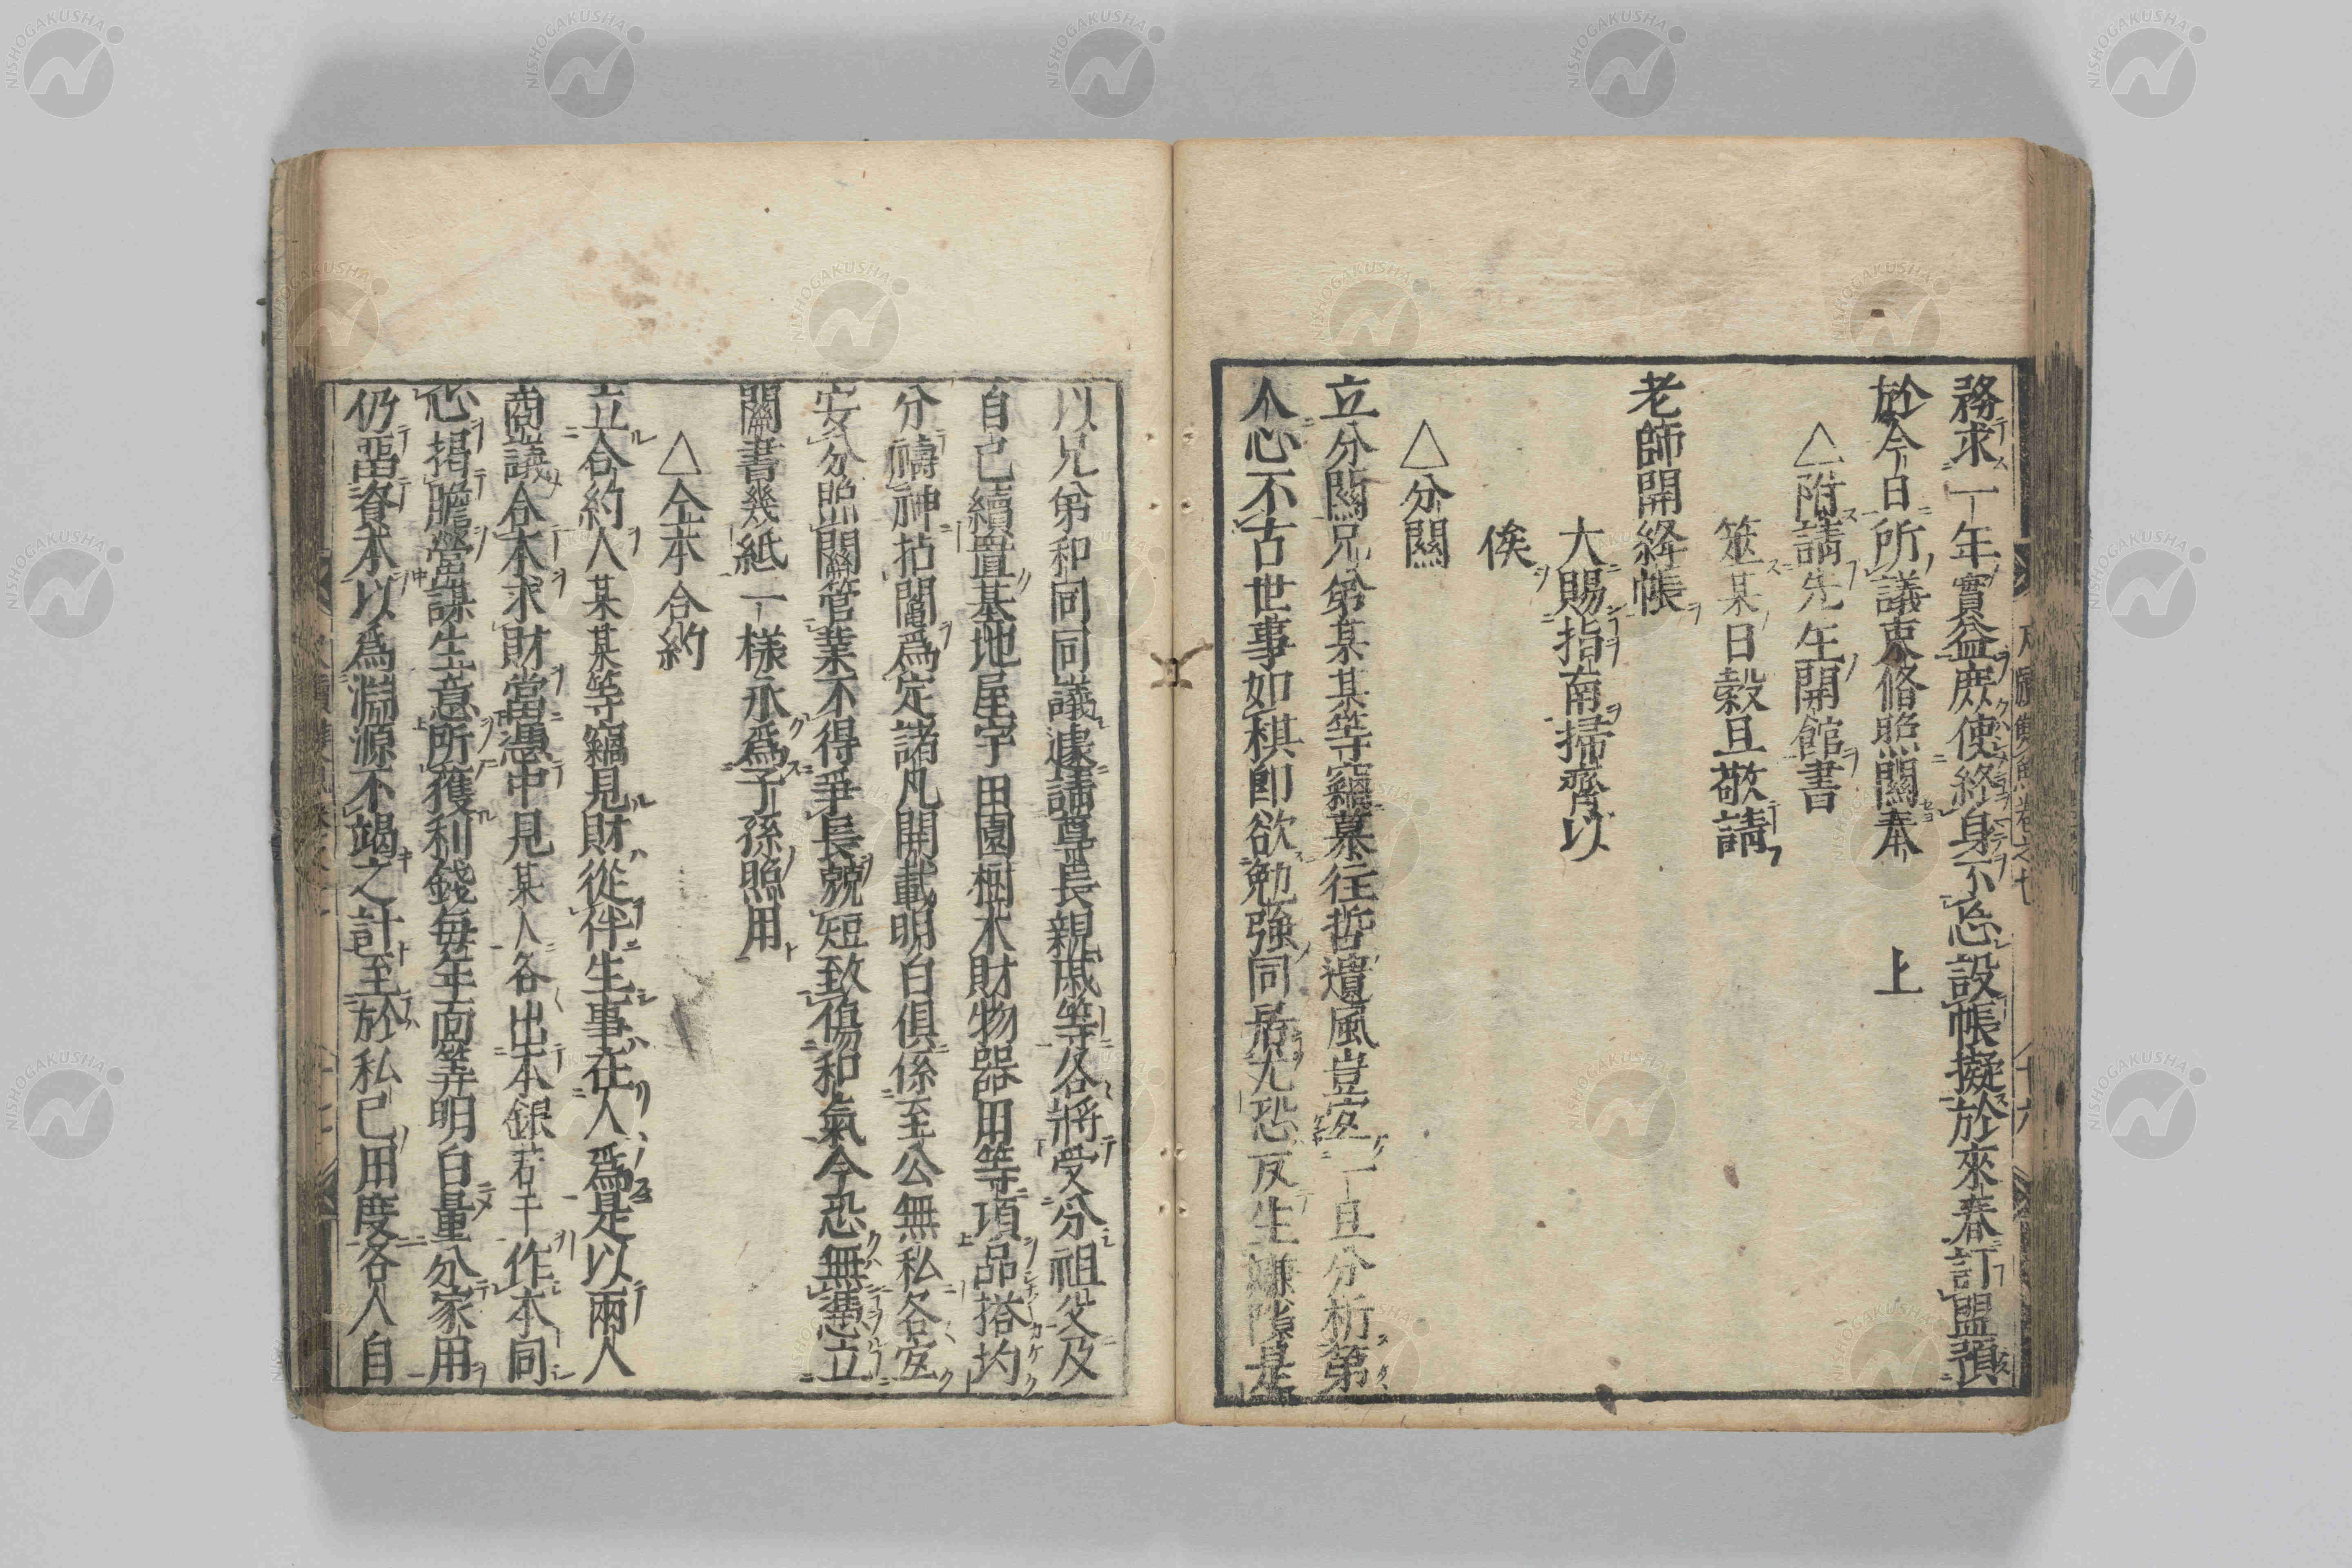 務求一年實益庶使終身不忘設帳擬於來春訂盟預
於今日所議束脩照關奉　上
△附請先生開館書
筮某日穀旦敬請
老師開絳帳
大賜指南掃齋以
俟
△分關
立分關兄弟某某等竊慕往哲遺風豈宜一旦分析第
人心不古世事如棋卽欲勉強同居尤恐反生嫌隙是
以兄弟和同同議遽請尊長親戚等各將受分祖父及
自己續置基地屋宇田園樹木財物器用等項品搭均
分禱神拈鬮爲定諸凡開載明白俱係至公無私各宜
安分照關管業不得爭長競短致傷和氣今恐無憑立
關書幾紙一樣永爲子孫照用
△仝本合約
立合約人某某等竊見財從伴生事在人爲是以兩人
商議合本求財當憑中見某人各出本銀若干作本同
心揭膽營謀生意所獲利錢每年面算明白量分家用
仍畱資本以爲淵源不竭之計至於私己用度各人自
NISHOGAKUSHA